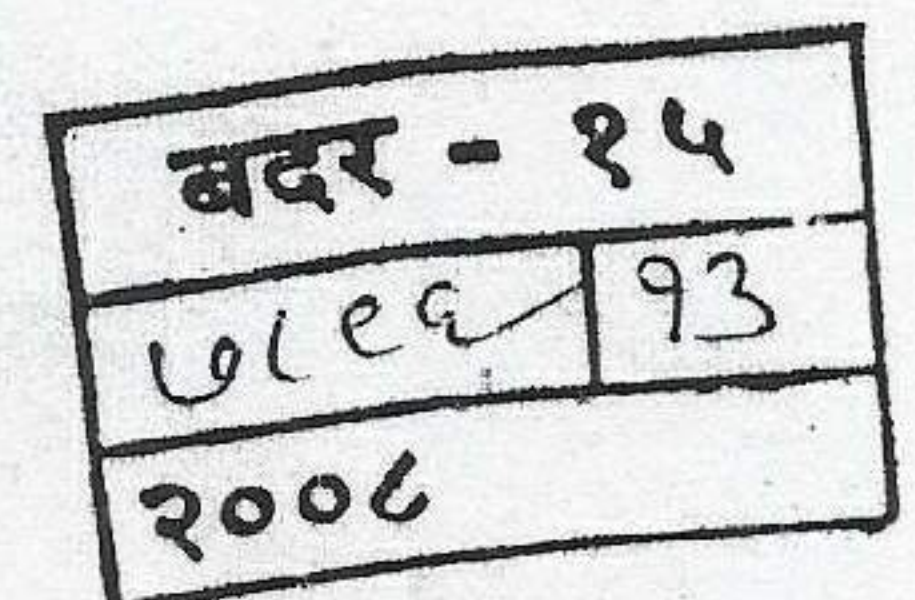 बदर - १५
७८९६ १३
२००८